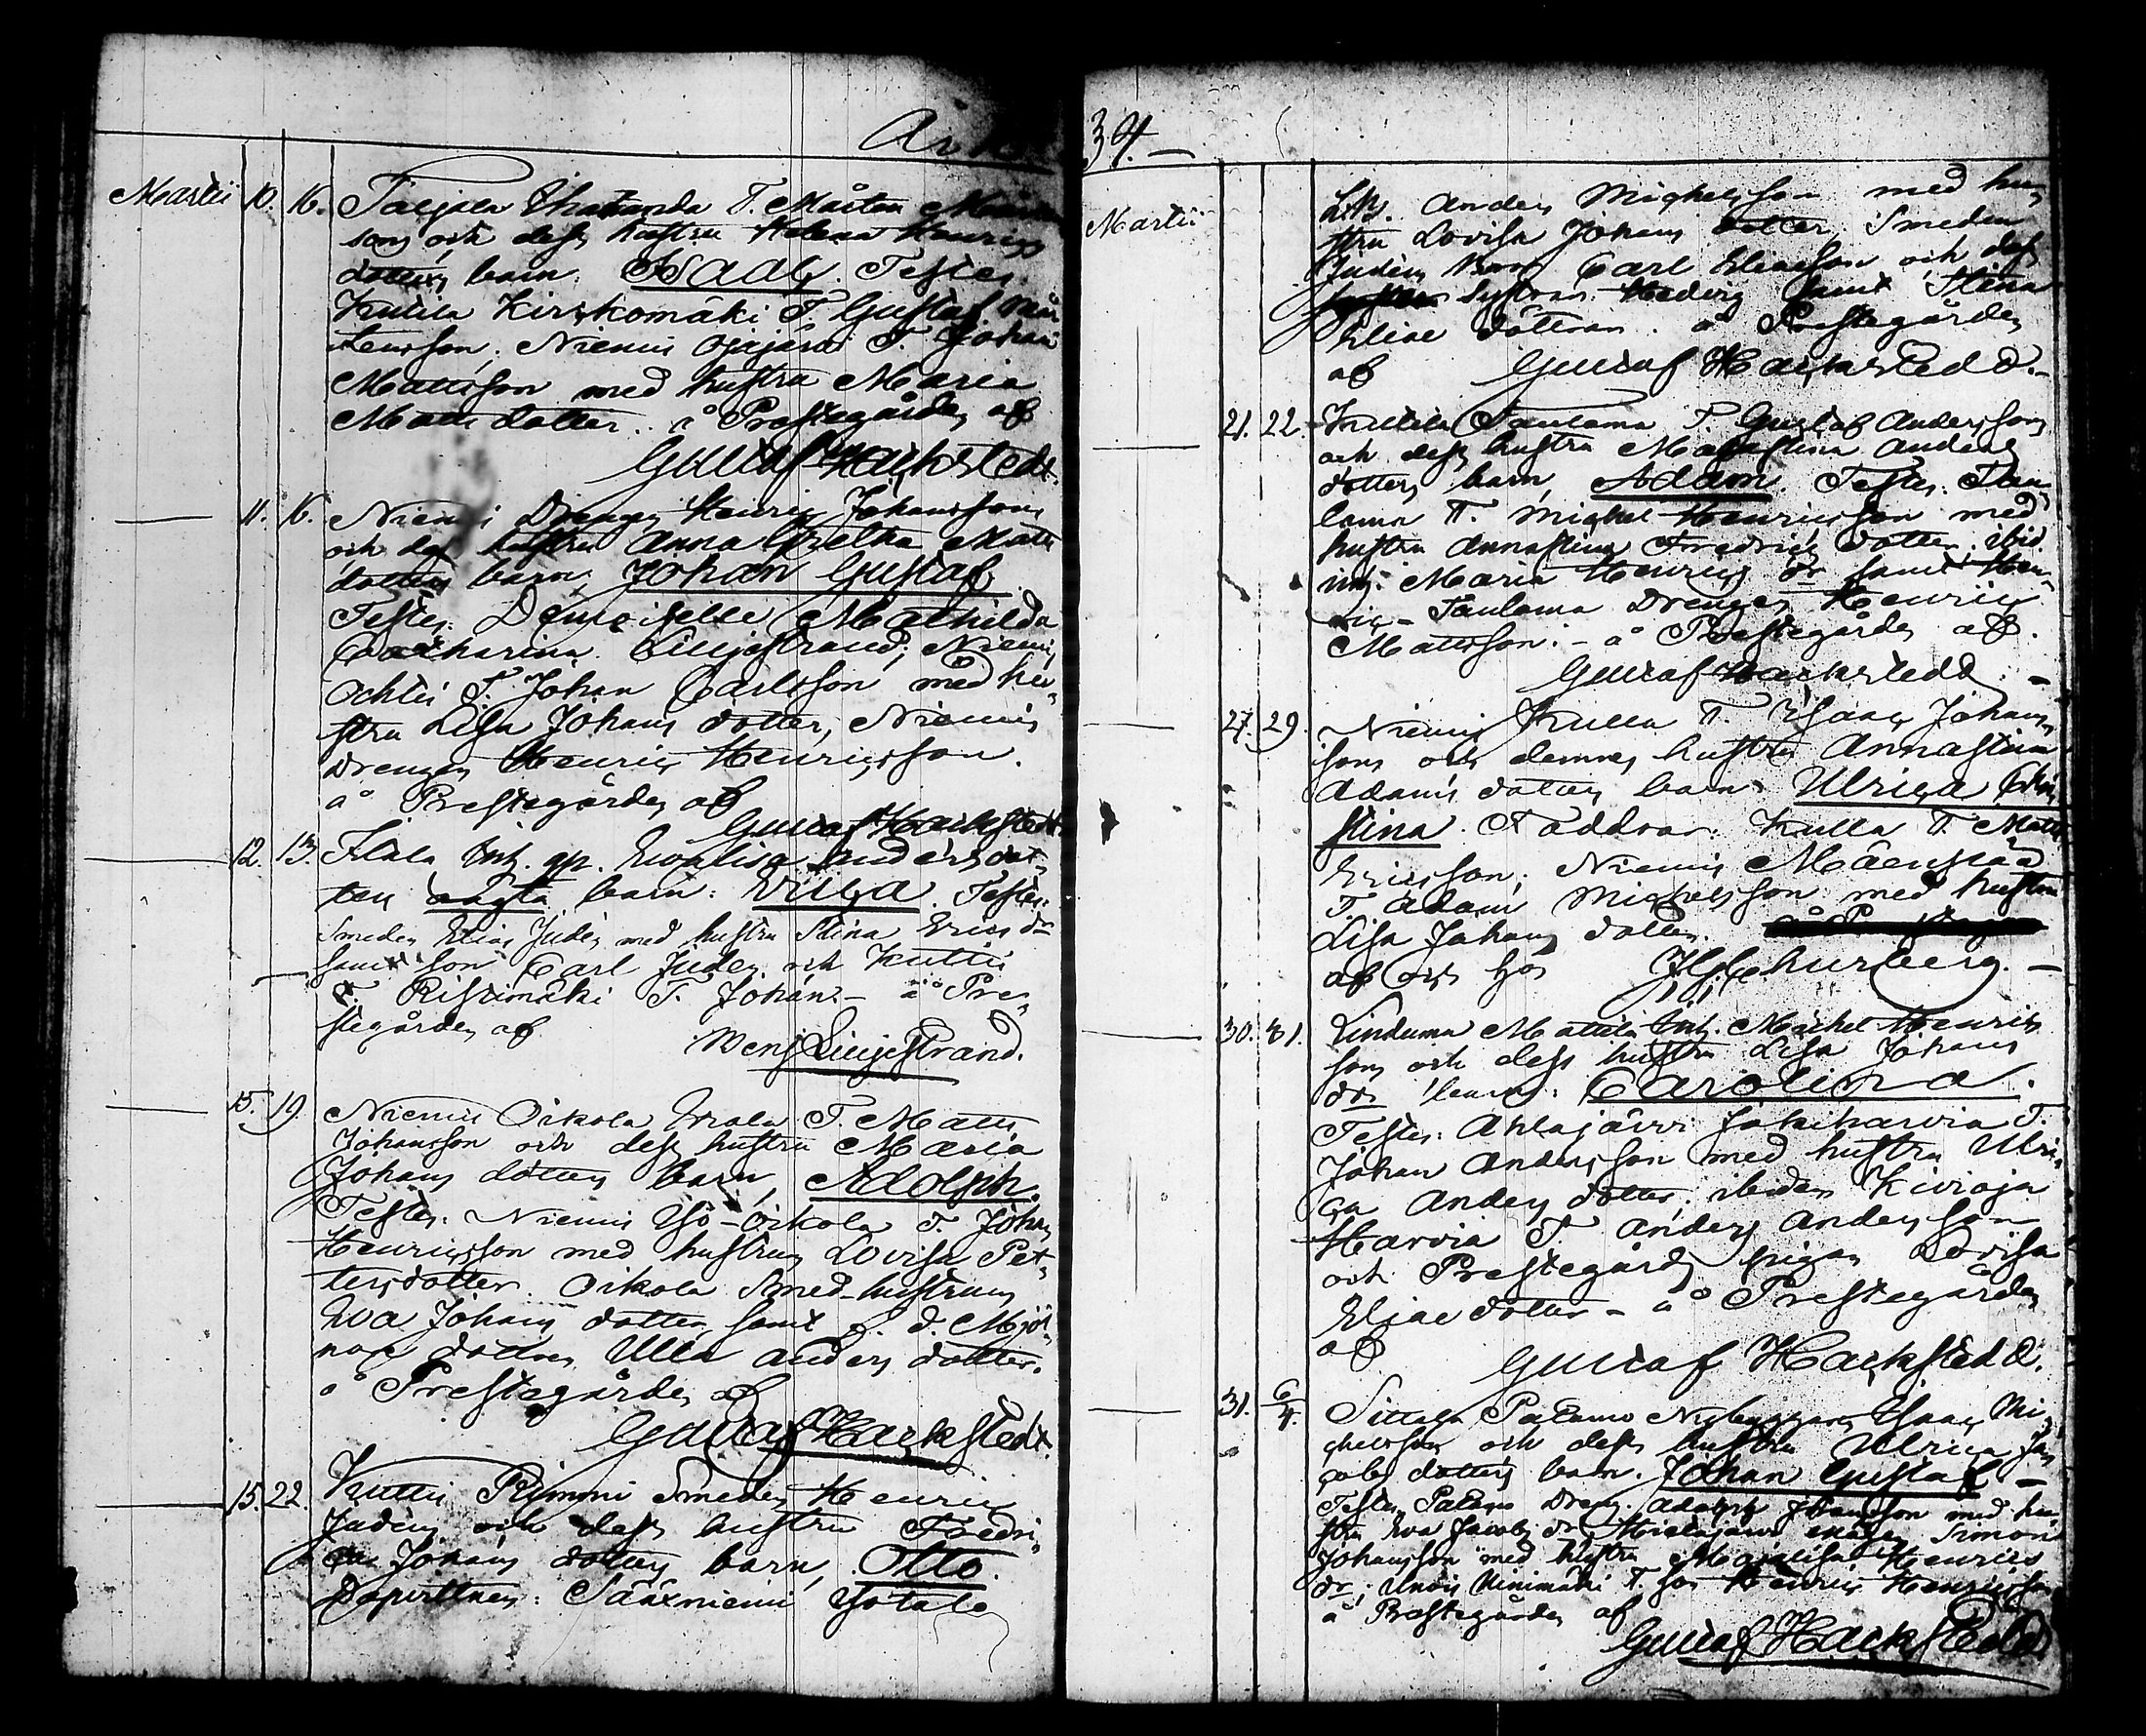 År
Martii 10. 16. T. Mårten
sons och dess hustru Helena Henrics
dotters barn: Isaac. Testes
Kutila Kirskomäki T. Gustaf Mår
tensson, Niemis Ojajärvi T. Johan
Mattsson med hustru Maria
Matts dotter. å Prestegården af
Gustaf Hackstedt.
11. 16. Niemis Drengen Henric Johanssons
och dess hustru Anna Gretha Matts
dotters barn, Johan Gustaf
Testes: Demoiselle Mathilda
Catharina Liljestrand; Niemis
Ochtis T. Johan Carlsson med hu-
stru Lisa Johans dotter, Niemis
Drengen Henric Henricsson.
å Prestegården af
Gustaf Hackstedt
12. 13. Inh. qp. Evalisa Anders dot-
ters oägta barn: Ulrica. Testes:
Smeden Elias Judén med hustru Stina Erics dr
samt son Carl Judén och Kuttis
Ristimäki T. Johan. – å Pre-
stegården af
Benj. Liljestrand.
15. 19. Niemis Oikola T. Matts
Johansson och dess hustru Maria
Johans dotters barn, Adolph.
Testes: Niemis Iso-Oikola T. Johan
Henricsson med hustrun Lovisa Pet-
tersdotter. Oikola Smed-hustrun
Eva Johans dotter, samt f. d. Mjöl-
nare dottren Ulla Anders dotter.
å Prestegården af
Gustaf Hackstedt.
15. 22. Kuttis Smeden Henric
Judéns och dess hustru Fredri-
Johans dotters barn, Otto.
Sääxniemi Isotalo
34. –
Martii
Anders Michelsson med hu-
stru Lovisa Johans dotter, Smeden
Judéns Carl Eliaesson och dess
Systrar Hedvig samt Stina
Eliae döttrar. å Prestegården
af Gustaf Hackstedt. –
21. 22. Kutila Taulama T. Gustaf Anderssons
och dess hustru Maja Stina Anders
dotters barn, Adam. Testes: Tau-
lama T. Michel Henricsson med
hustru Anna Stina Fredrics dotter. ibid.
Maria Henrics dr samt
Taulama Drengen Henric
Mattsson. – å Prestegården af.
Gustaf Hackstedt. –
27. 29. Niemis Kulla T. Isaac Johans-
sons och dennes hustru Anna Stina
Adams dotters barn: Ulrica Chri-
stina. Faddrar: Kulla T. Matts
Ericsson, Niemis Mäenpää
T. Adam Michelsson med hustru
Lisa Johans dotter.
af och hos J G Churberg. –
30. 31. Linduma Mattila Inh. Michel Henrics
sons och dess hustru Lisa Johans
drs barn: Carolina.
Testes: Ahlajärvi T.
Johan Andersson med hustru Ulri-
ca Anders dotter, ibidem Kivioja
Harvia T. Anders Andersson
och Prestegårds pigan Lovisa
Eliae dotter – å Prestegården
af Gustaf Hackstedt.
31. 6/4. Sittala Palamo Nybyggaren Isaac Mi-
chelsson och dess hustru Ulrica Ja-
cobs dotters barn. Johan Gustaf –
Testes. Palamo Dreng. Adolph Johansson med hu-
stru Eva Jacobs dr, Simon
Johansson med hustru Majalisa Henrics
dr; T. son Henric Henricsson
å Prestegården af
Gustaf Hackstedt